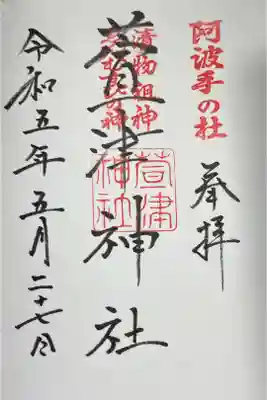 阿波手の杜
奉拝
漬物祖神
萱津神社
萱津
神社
令和五年五月二十七日